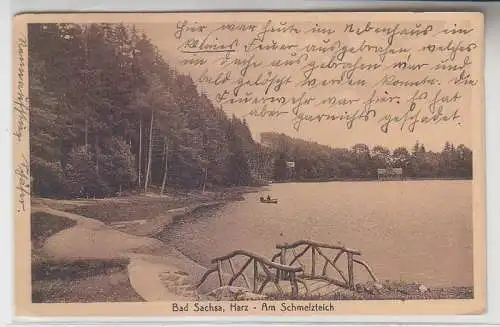 Hier war heute im Nebenhaus ein
kleines Feuer ausgebrochen welches
im Dache ausgebrochen war und
bald gelöscht werden konnte. Die
Feuerwehr war hier. Es hat
aber garnichts geschadet.
Bad Sachsa, Harz - Am Schmelzteich